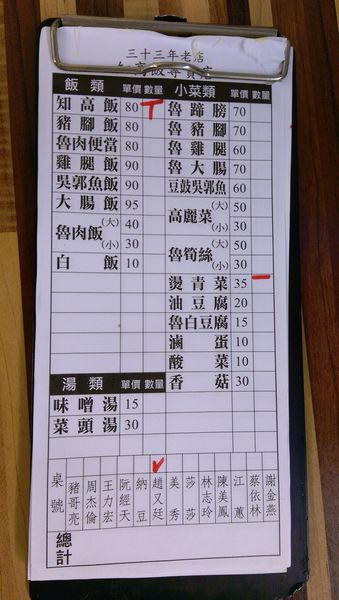 三十三年老店
知高飯專賣店
飯類 單價 數量 小菜類 單價 數量
知高飯 80 魯蹄膀 70
豬腳飯 80 魯豬腳 70
魯肉便當 80 魯雞腿 60
雞腿飯 90 魯大腸 70
吳郭魚飯 90 豆鼓吳郭魚 60
大腸飯 95 高麗菜 (大) 50
魯肉飯 (大) 40 (小) 30
(小) 30 魯筍絲 (大) 50
白飯 10 (小) 30
燙青菜 35
油豆腐 20
魯白豆腐 15
滷蛋 10
酸菜 10
湯類 單價 數量 香菇 30
味噌湯 15
菜頭湯 30
桌號 豬哥亮 周杰倫 王力宏 阮經天 納豆 趙又廷 美秀 莎莎 林志玲 陳美鳳 江蕙 蔡依林 謝金燕
總計